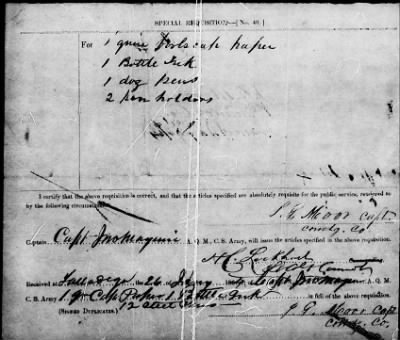 SPECIAL REQUISITION—[No. 40.]
For 1 quire Foolscap paper
1 Bottle Ink
1 doz pens
2 pen holders
I certify that the above requisition is correct, and that the articles specified are absolutely requisite for the public service, rendered so
by the following circumstances:
Capt
comdg. Co.
Captain Capt Jno Maguire A. Q. M., C. S. Army, will issue the articles specified in the above requisition.
Received at Talladega the 26 of Capt Jno A. Q. M.
C. S. Army 1 qr Cap Paper 1 Bottle Ink in full of the above requisition.
(SIGNED DUPLICATES.) 12 Steel Pens
J. G. Moor Capt
comdg. Co.